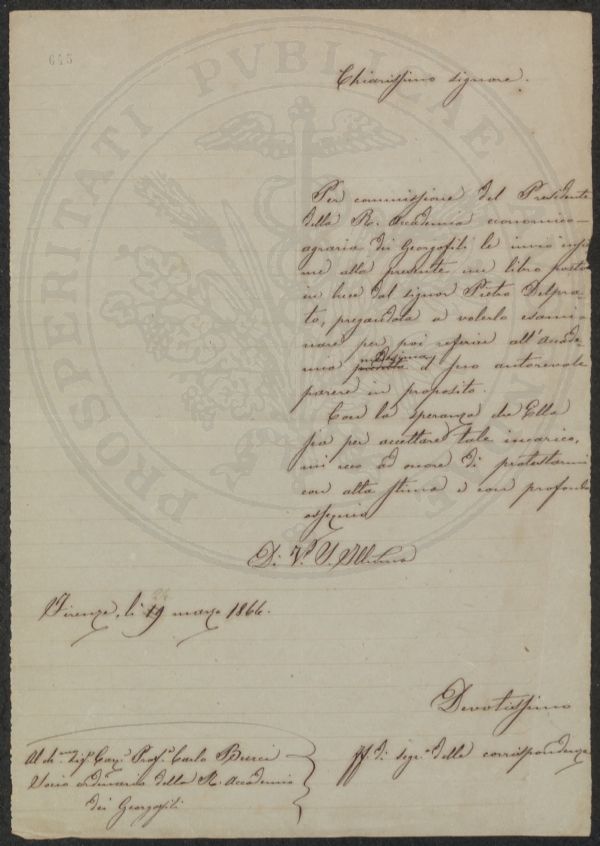 645
PROSPERITATI PVBLICAE
Chiarissimo Signore.
Per commissione del Presidente
della R. Accademia economico-
agraria dei Georgofili le invio insie
me alla presente un libro posto
in luce dal signor Pietro Delpra-
to, pregandola a volerlo esami-
nare per poi referire all'Accade-
mia medesima il suo autorevole
parere in proposito.
Con la speranza che Ella
sia per accettare tale incarico,
mi reco ad onore di protestarmi
con alta stima e con profondo
ossequio
Di V. S. Illma
Firenze, li 19 marzo 1866.
Devotissimo
ff. di segr. della corrispondenza
Al ch. Sig. Cav. Prof. Carlo
Socio ordinario della R. Accademia
dei Georgofili